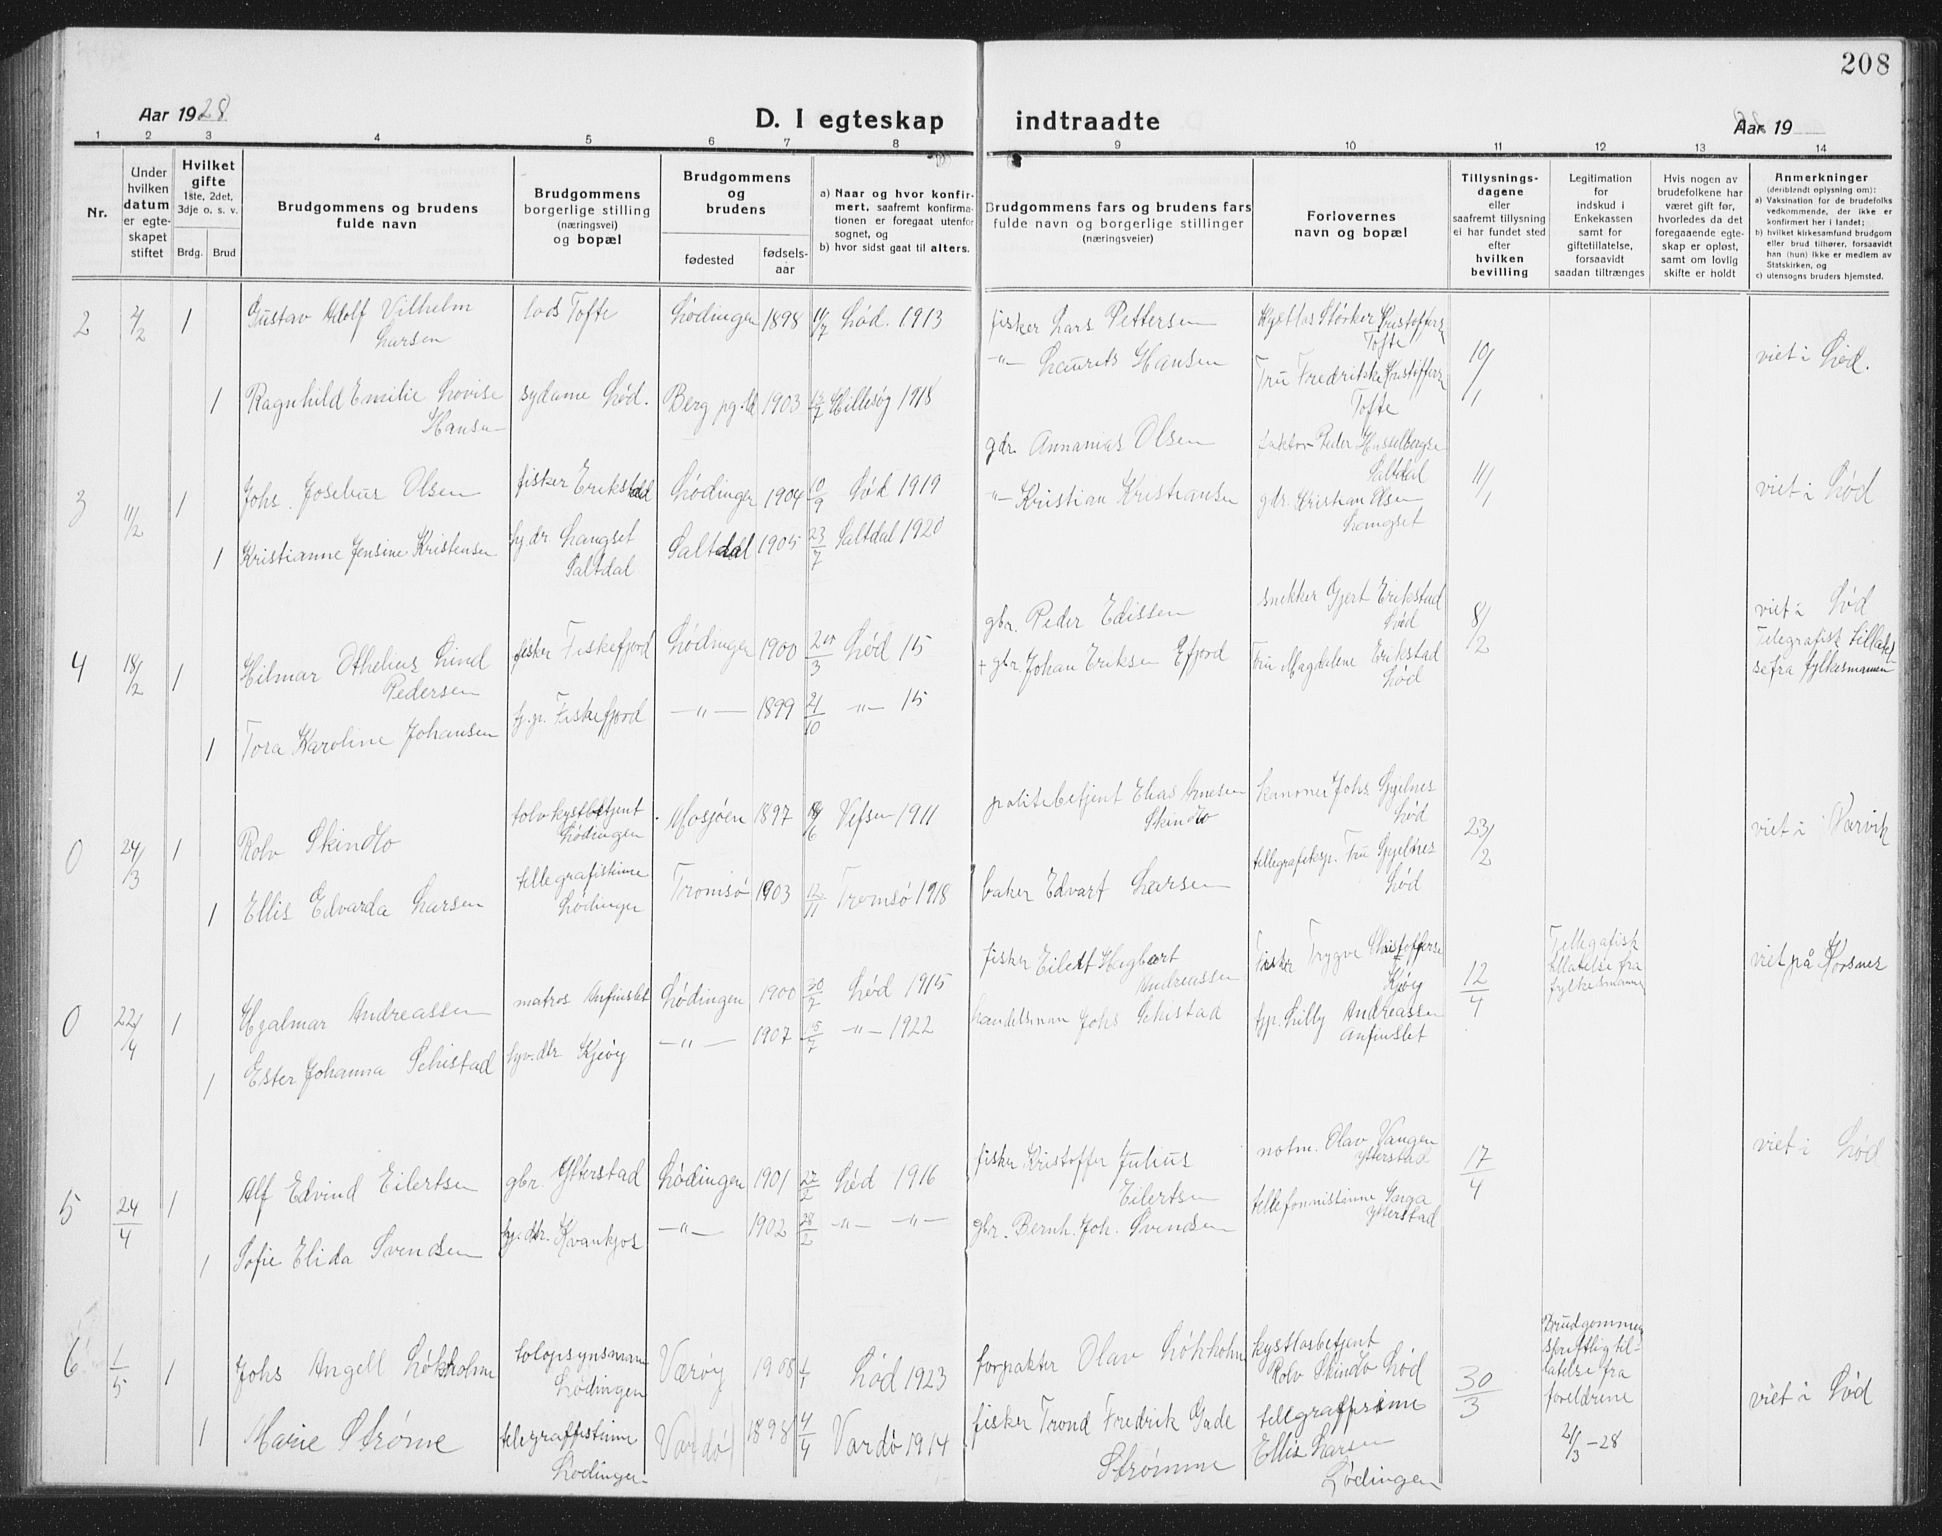 208
Aar 1928
D. I egteskap indtraadte
Aar 19
1 2 3 4 5 6 7 8 9 10 11 12 13 14
Nr.
Under
hvilken
datum
er egte-
skapet
stiftet
Hvilket
gifte
1ste, 2det,
3dje o. s. v.
Brdg. Brud
Brudgommens og brudens
fulde navn
Brudgommens
borgerlige stilling
(næringsvei)
og bopæl
Brudgommens
og
brudens
fødested
fødsels-
aar
a) Naar og hvor konfir-
mert, saafremt konfirma-
tionen er foregaat utenfor
sognet, og
b) hvor sidst gaat til alters.
Brudgommens fars og brudens fars
fulde navn og borgerlige stillinger
(næringsveier)
Forlovernes
navn og bopæl
Tillysnings-
dagene
eller
saafremt tillysning
ei har fundet sted
efter
hvilken
bevilling
Legitimation
for
indskud i
Enkekassen
samt for
giftetillatelse,
forsaavidt
saadan tiltrænges
Hvis nogen av
brudefolkene har
været gift før,
hvorledes da det
foregaaende egte-
skap er opløst,
samt om lovlig
skifte er holdt
Anmerkninger
(deriblandt oplysning om):
a) Vaksination for de brudefolks
vedkommende, der ikke er
konfirmert her i landet;
b) hvilket kirkesamfund brudgom
eller brud tilhører, forsaavidt
han (hun) ikke er medlem av
Statskirken, og
c) utensogns bruders hjemsted.
2 4/2 1 Gustav Adolf Vilhelm
Larsen
lods Tofte
Lødingen 1898 Lød. 1913
fisker Lars Pettersen
Størker Kristoffers
Tofte
10/1
viet i Lød.
1 Ragnhild Emilie Lovise
Hansen
sydame Lød.
Berg pg. 1903 Hillesøy 1918
-"- Laurits Hansen
Fru Fredrikke Kristoffers
Tofte
3 11/2 1 Johs. Josebus Olsen
fisker Erikstad
Lødingen 1904 10/9 Lød 1919
gdr. Annanias Olsen
Peder Hasselbergse
Saltdal
11/1
viet i Lød
1 Kristianne Jensine Kristensen
Langset
Saltdal
Saltdal 1905 23/7 Saltdal 1920
" Kristian Kristiansen
gdr. Kristian Olsen
Langset
4 18/2 1 Hilmar Othelius Lind
Pedersen
fisker Fiskefjord
Lødingen 1900 Lød 15
gbr. Peder Edissen
snekker Gjert Erikstad
Lød
8/2
viet i Lød
Telegrafisk tillatel-
se fra fylkesmannen
1 Tora Karoline Johansen
Fiskefjord
-"- 1899 21/10 -"- 15
+ gbr. Johan Eriksen Efjord
Fru Magdalene Erikstad
Lød
0 24/3 1 Rolv Skindlo
Lødingen
Mosjøen 1897 Vefsen 1911
politibetjent Elias Arnesen
Skindlo
Johs. Gjelnes
Lød
23/2
viet i Narvik
1 Ellis Edvarda Larsen
tellegrafistinne
Lødingen
Tromsø 1903 12/11 Tromsø 1918
baker Edvart Larsen
tellegrafeksp. Fru Gjelnes
Lød
0 22/4 1 Hjalmar Andreassen
matros Anfinslet
Lødingen 1900 30/7 Lød 1915
fisker Eilert Hagbart
Andreassen
fisker Trygve Kristoffersen
Kjøy
12/4
Tellegafisk
tillatelse fra
fylkesmannen
viet på Korsnes
1 Ester Johanna Schistad
Kjøy
-"- 1907 15/7 -"- 1922
handelsman Johs Schistad
Lilly Andreassen
Anfinslet
5 24/4 1 Alf Edvind Eilertsen
gbr. Ytterstad
Lødingen 1901 27/2 Lød 1916
fisker Kristoffer Julius
Eilertsen
Olav Vangen
Ytterstad
17/4
viet i Lød
1 Sofie Elida Svendsen
Kvankjos
-"- 1902 28/2 -"- -"-
gbr. Bernh. Joh. Svendsen
tellefonnistinne Inga
Ytterstad
6 1/5 1 Johs Angell Løkholm
tolopsynsman
Lødingen
Værøy 1908 Lød 1923
forpakter Olav Løkholm
kysttolbetjent
Rolv Skindlo Lød
30/3
Brudgommens
skriftlig til-
latelse fra
foreldrene
2/3 -28
viet i Lød
1 Marie Strømme
telegraffistinne
Lødingen
Vardø 1898 4/4 Vardø 1914
fisker Trond Fredrik Gade
Strømme
telegraffistinne
Ellis Larsen
Lødingen